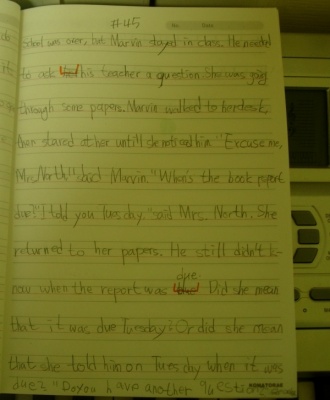 #45
school was over, but Marvin stayed in class. He needed
to ask his teacher a question. She was going
through some papers. Marvin walked to her desk,
then stared at her untill she noticed him. "Excuse me,
Mrs. North" said Marvin. "When's the book report
due?" I told you Tuesday." said Mrs. North. She
returned to her papers. He still didn't k-
now when the report was due. Did she mean
that it was due Tuesday? Or did she mean
that she told him on Tuesday when it was
due? "Do you have another question?"